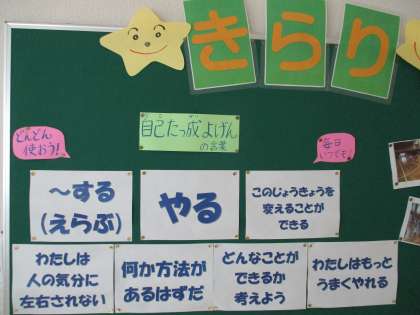 きらり
自己たっ成よげん
の言葉
どんどん
使おう!
毎日
いつでも
～する
(えらぶ)
やる
このじょうきょうを
変えることが
できる
わたしは
人の気分に
左右されない
何か方法が
あるはずだ
どんなことが
できるか
考えよう
わたしはもっと
うまくやれる